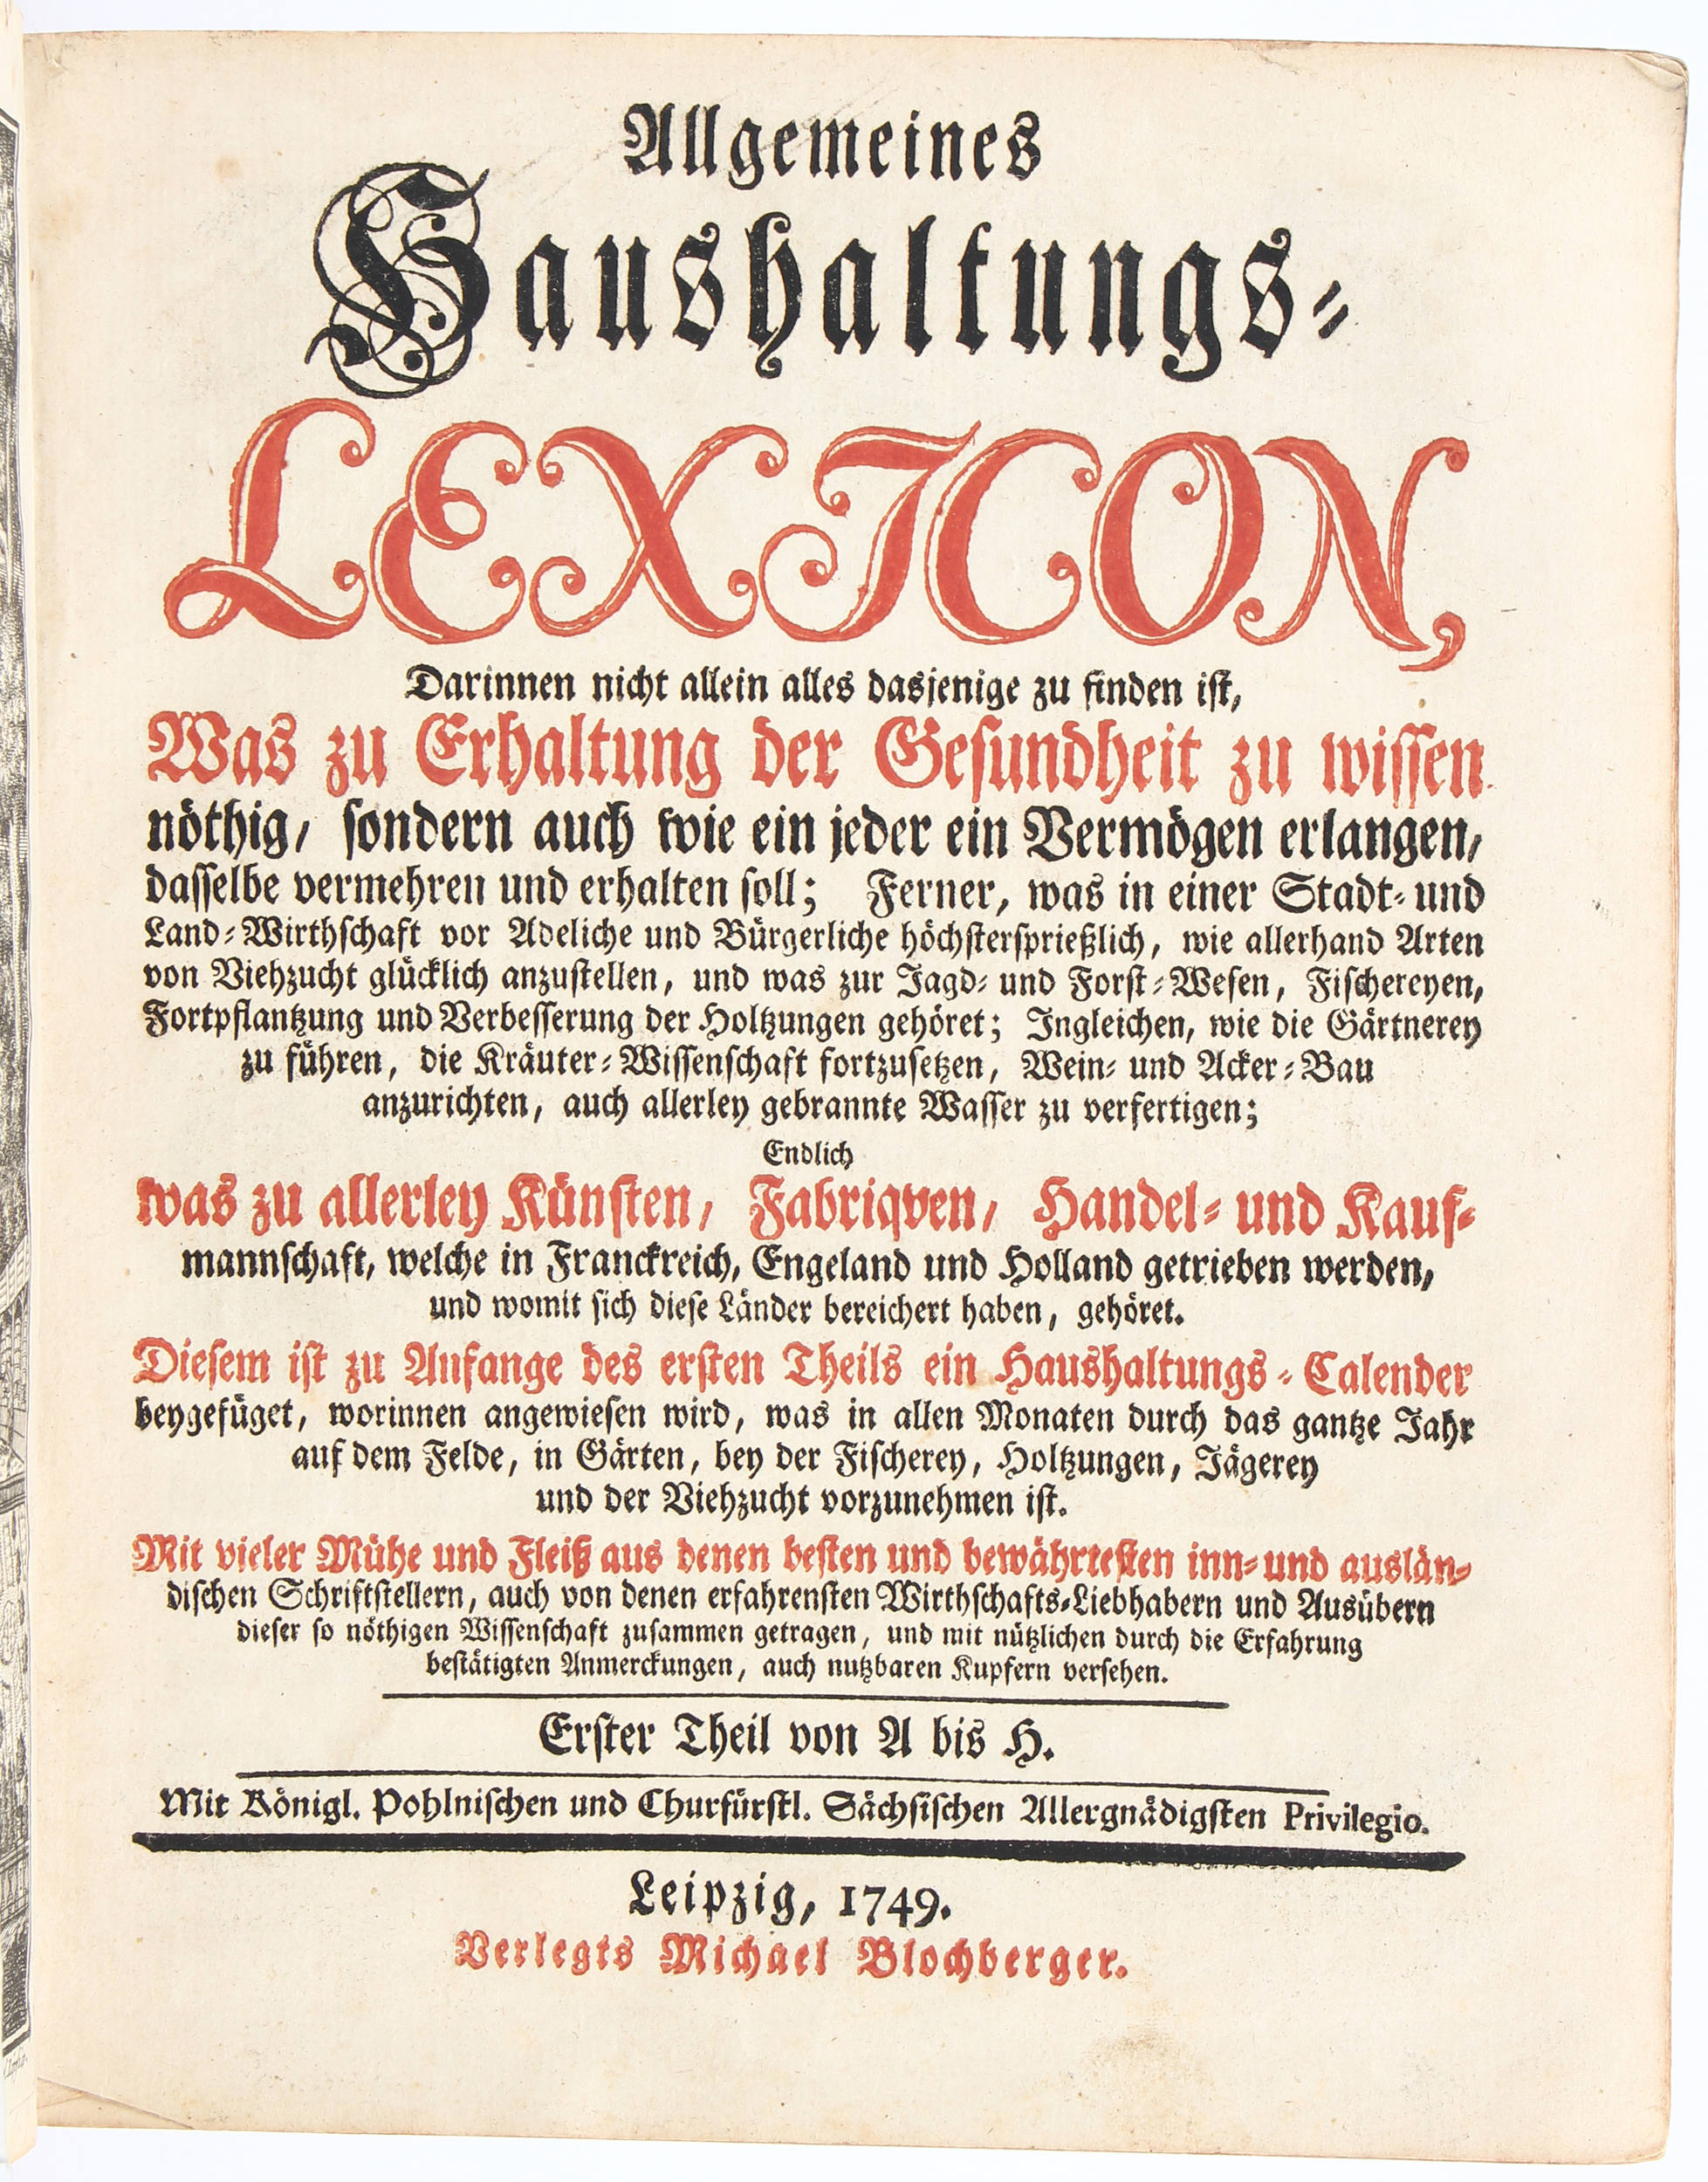 Allgemeines
Haushaltungs-
LEXICON,
Darinnen nicht allein alles dasjenige zu finden ist,
Was zu Erhaltung der Gesundheit zu wissen
nöthig, sondern auch wie ein jeder ein Vermögen erlangen,
dasselbe vermehren und erhalten soll; Ferner, was in einer Stadt- und
Land-Wirthschaft vor Adeliche und Bürgerliche höchstersprießlich, wie allerhand Arten
von Viehzucht glücklich anzustellen, und was zur Jagd- und Forst-Wesen, Fischereyen,
Fortpflantzung und Verbesserung der Holtzungen gehöret; Ingleichen, wie die Gärtnerey
zu führen, die Kräuter-Wissenschaft fortzusetzen, Wein- und Acker-Bau
anzurichten, auch allerley gebrannte Wasser zu verfertigen;
Endlich
was zu allerley Künsten, Fabriqven, Handel- und Kauf-
mannschaft, welche in Franckreich, Engeland und Holland getrieben werden,
und womit sich diese Länder bereichert haben, gehöret.
Diesem ist zu Anfange des ersten Theils ein Haushaltungs-Calender
beygefüget, worinnen angewiesen wird, was in allen Monaten durch das gantze Jahr
auf dem Felde, in Gärten, bey der Fischerey, Holtzungen, Jägerey
und der Viehzucht vorzunehmen ist.
Mit vieler Mühe und Fleiß aus denen besten und bewährtesten inn- und auslän-
dischen Schriftstellern, auch von denen erfahrensten Wirthschafts-Liebhabern und Ausübern
dieser so nöthigen Wissenschaft zusammen getragen, und mit nützlichen durch die Erfahrung
bestätigten Anmerckungen, auch nutzbaren Kupfern versehen.
Erster Theil von A bis H.
Mit Königl. Pohlnischen und Churfürstl. Sächsischen Allergnädigsten Privilegio.
Leipzig, 1749.
Verlegts Michael Blochberger.